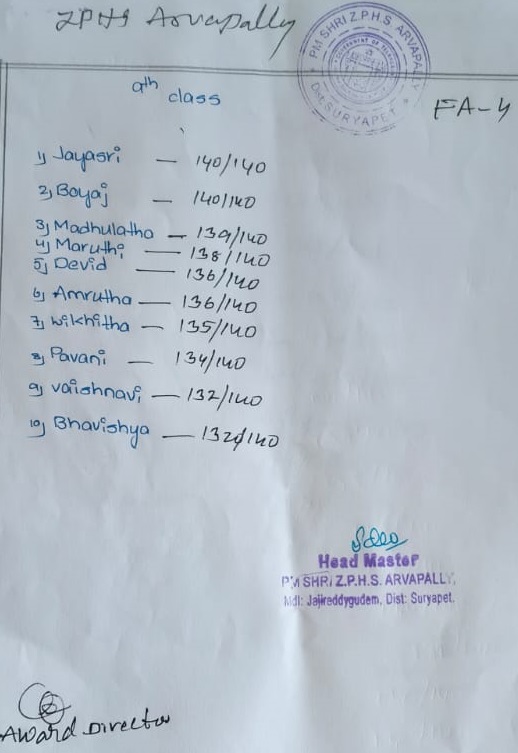 ZPHS Arvapally
PM SHRI Z.P.H.S. ARVAPALLY
Dist. SURYAPET
9th class
FA-4
1) Jayasri — 140/140
2) Boyaj — 140/140
3) Madhulatha — 139/140
4) Maruthi — 138/140
5) Devid — 136/140
6) Amrutha — 136/140
7) Wikhitha — 135/140
8) Pavani — 134/140
9) Vaishnavi — 132/140
10) Bhavishya — 132/140
Head Master
PM SHRI Z.P.H.S. ARVAPALLY,
Mdl: Jajireddygudem, Dist: Suryapet.
Award Director